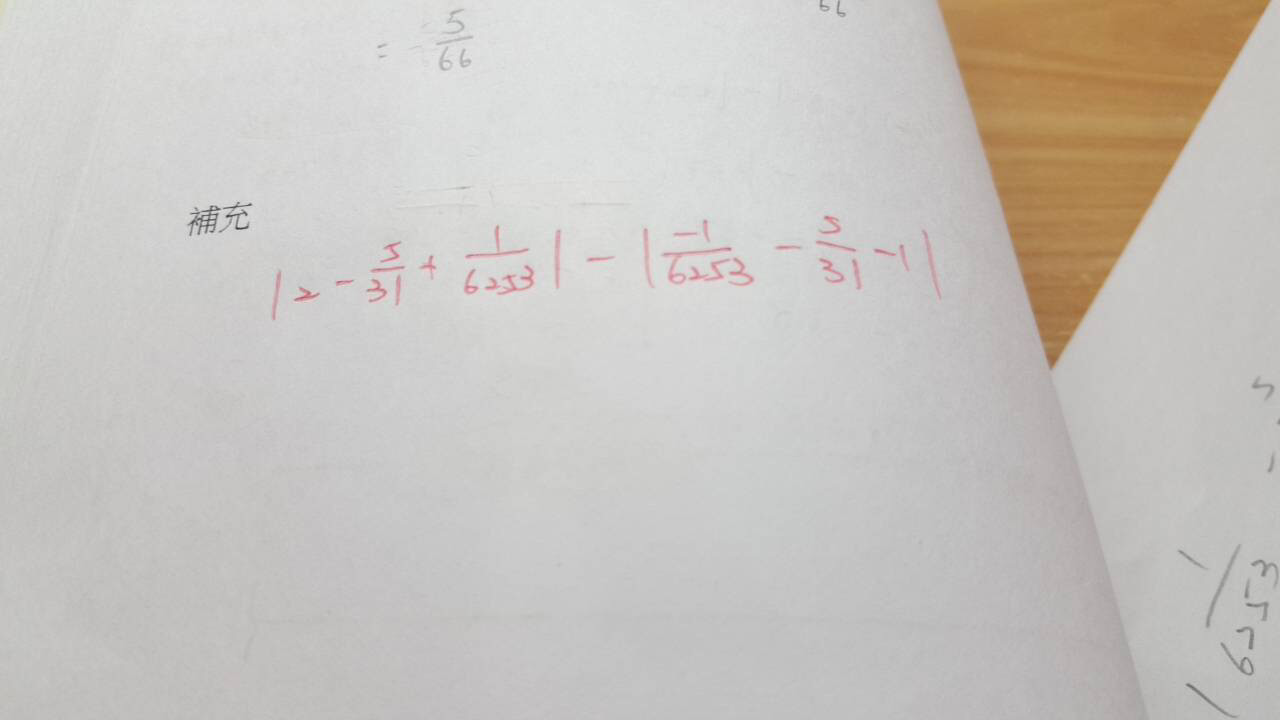 66
= 5/66
補充
|2 - 5/31 + 1/6253| - |-1/6253 - 5/31 - 1|
6253